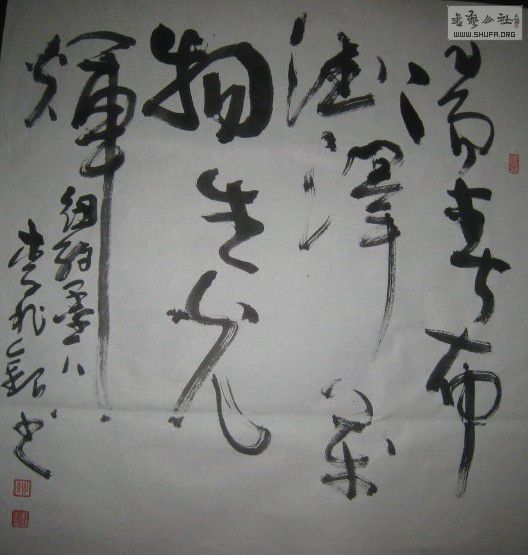 陽春布
德澤萬
物生光
輝
書藝公社
WWW.SHUFA.ORG